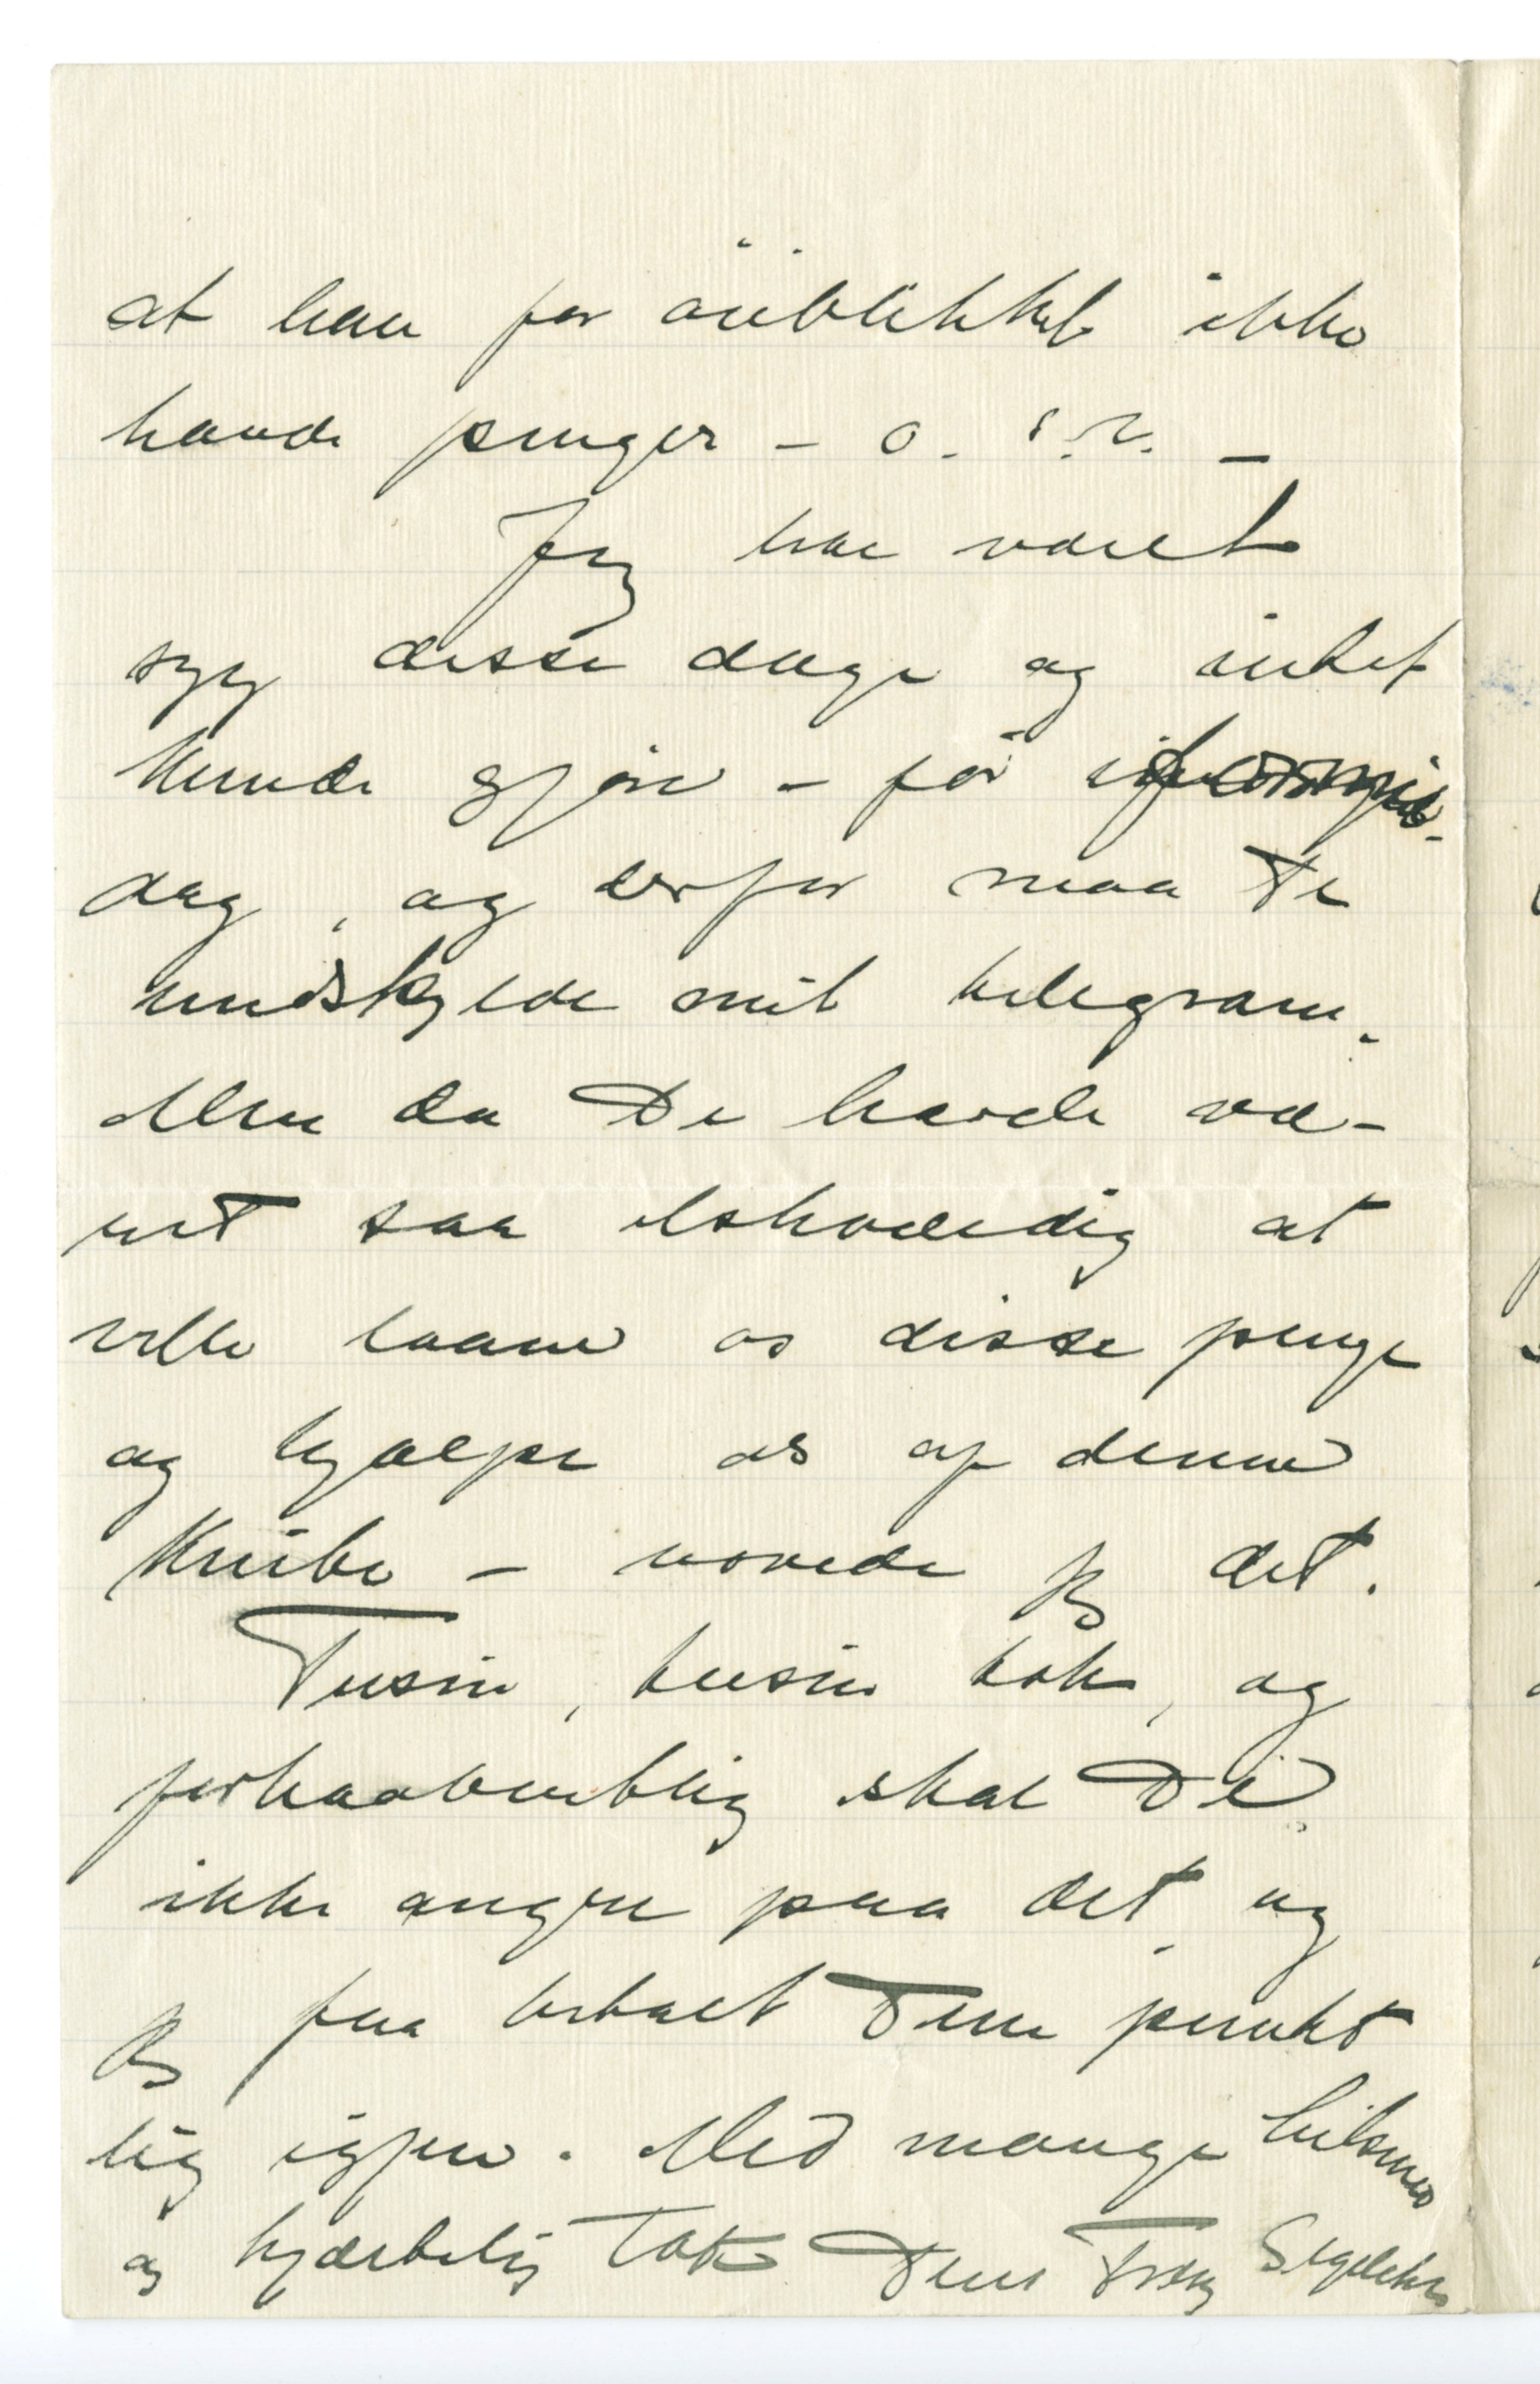 at han for öieblikket ikke
havde penger – o. s. v. –
Jeg har været
syg disse dage og intet
kunde gjöre – för i
dag, og derfor maa De
undskylde mit telegram.
Men da De havde væ-
ret saa elskværdig at
ville laane os disse penge
og hjælpe os af denne
Knibe – vovede jeg det.
Tusin, tusin tak, og
forhaabentlig skal De
ikke angre paa det og
jeg faa betalt Dem punkt
lig igjen. Med mange hilsener
og hjærtelig Tak Deres Tolly Segelcke